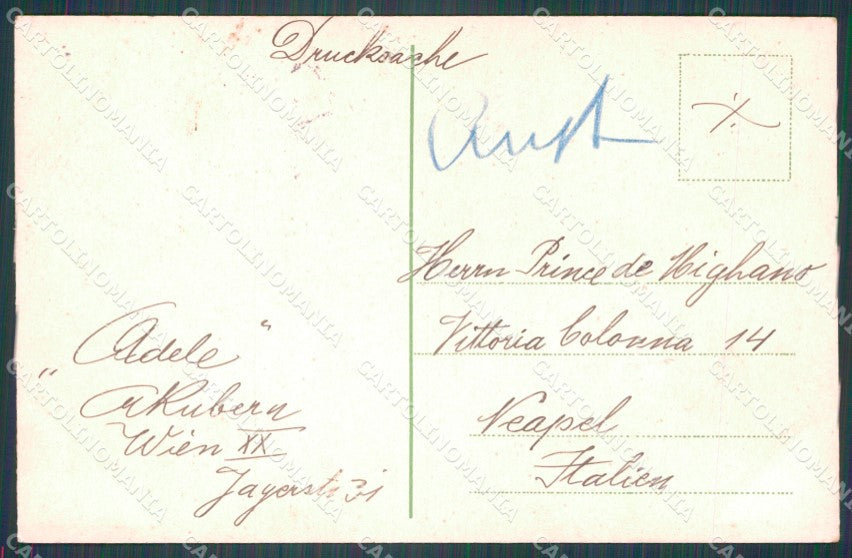 Drucksache
Herrn Prince de Mighano
Vittoria Colonna 14
Neapel
Italien
"Adele"
Wien XX
Jägerstr 31
CARTOLINOMANIA